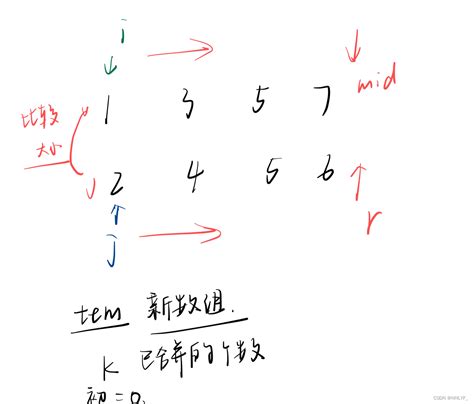 i
1 3 5 7
mid
比较
大小
2 4 5 6
j
r
tem 新数组.
k 已合并的个数
初=0.